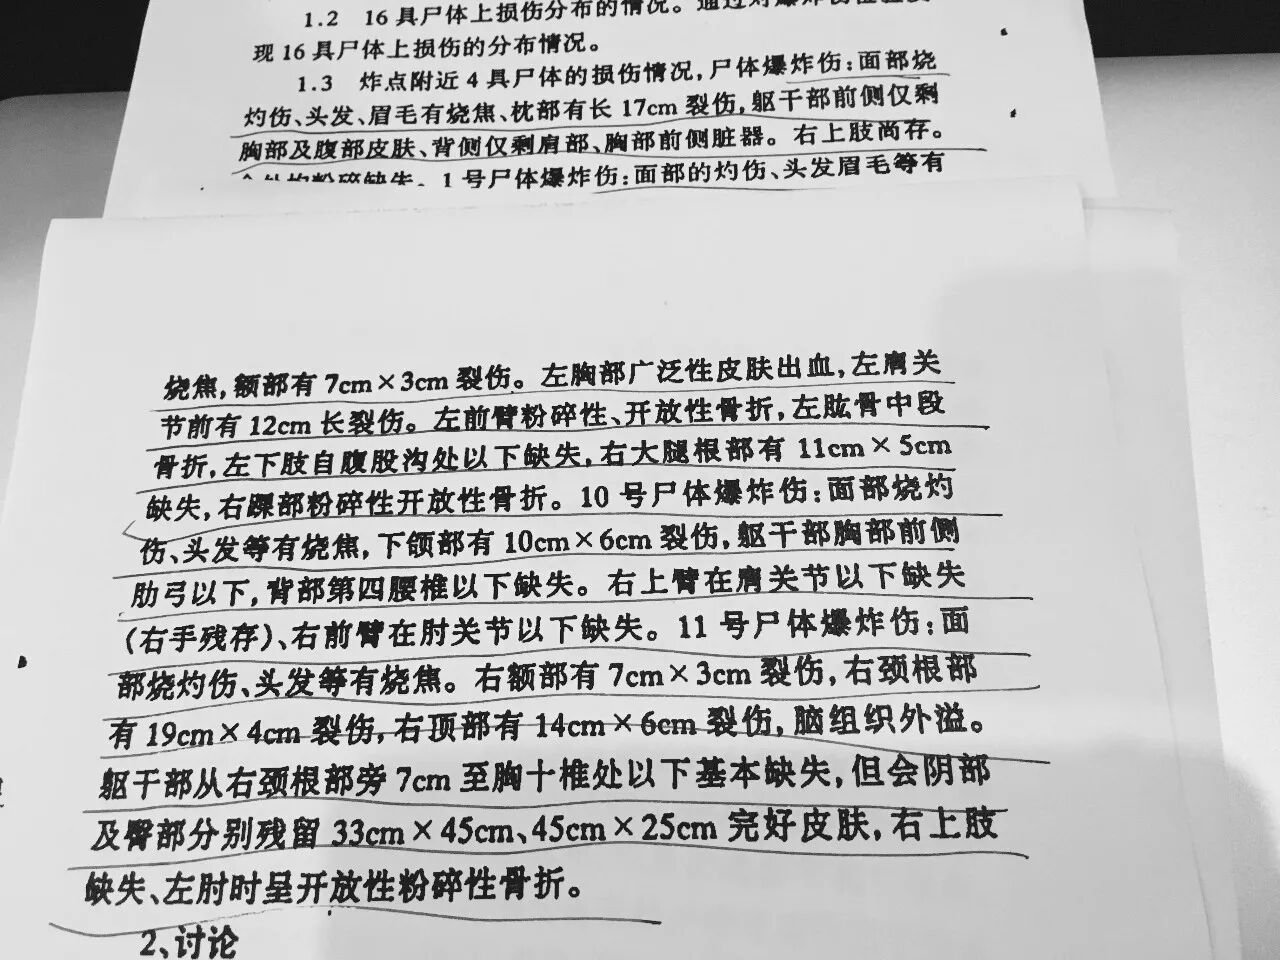 1.2 16具尸体上损伤分布的情况。通过对爆炸伤
现16具尸体上损伤的分布情况。
1.3 炸点附近4具尸体的损伤情况,尸体爆炸伤:面部烧
灼伤、头发、眉毛有烧焦、枕部有长17cm裂伤,躯干部前侧仅剩
胸部及腹部皮肤、背侧仅剩肩部、胸部前侧脏器。右上肢尚存。
粉碎缺失。1号尸体爆炸伤:面部的灼伤、头发眉毛等有
烧焦,额部有7cm×3cm裂伤。左胸部广泛性皮肤出血,左肩关
节前有12cm长裂伤。左前臂粉碎性、开放性骨折,左肱骨中段
骨折,左下肢自腹股沟处以下缺失,右大腿根部有11cm×5cm
缺失,右踝部粉碎性开放性骨折。10号尸体爆炸伤:面部烧灼
伤、头发等有烧焦,下颌部有10cm×6cm裂伤,躯干部胸部前侧
肋弓以下,背部第四腰椎以下缺失。右上臂在肩关节以下缺失
(右手残存)、右前臂在肘关节以下缺失。11号尸体爆炸伤:面
部烧灼伤、头发等有烧焦。右额部有7cm×3cm裂伤,右颈根部
有19cm×4cm裂伤,右顶部有14cm×6cm裂伤,脑组织外溢。
躯干部从右颈根部旁7cm至胸十椎处以下基本缺失,但会阴部
及臀部分别残留33cm×45cm、45cm×25cm完好皮肤,右上肢
缺失、左肘时呈开放性粉碎性骨折。
2、讨论